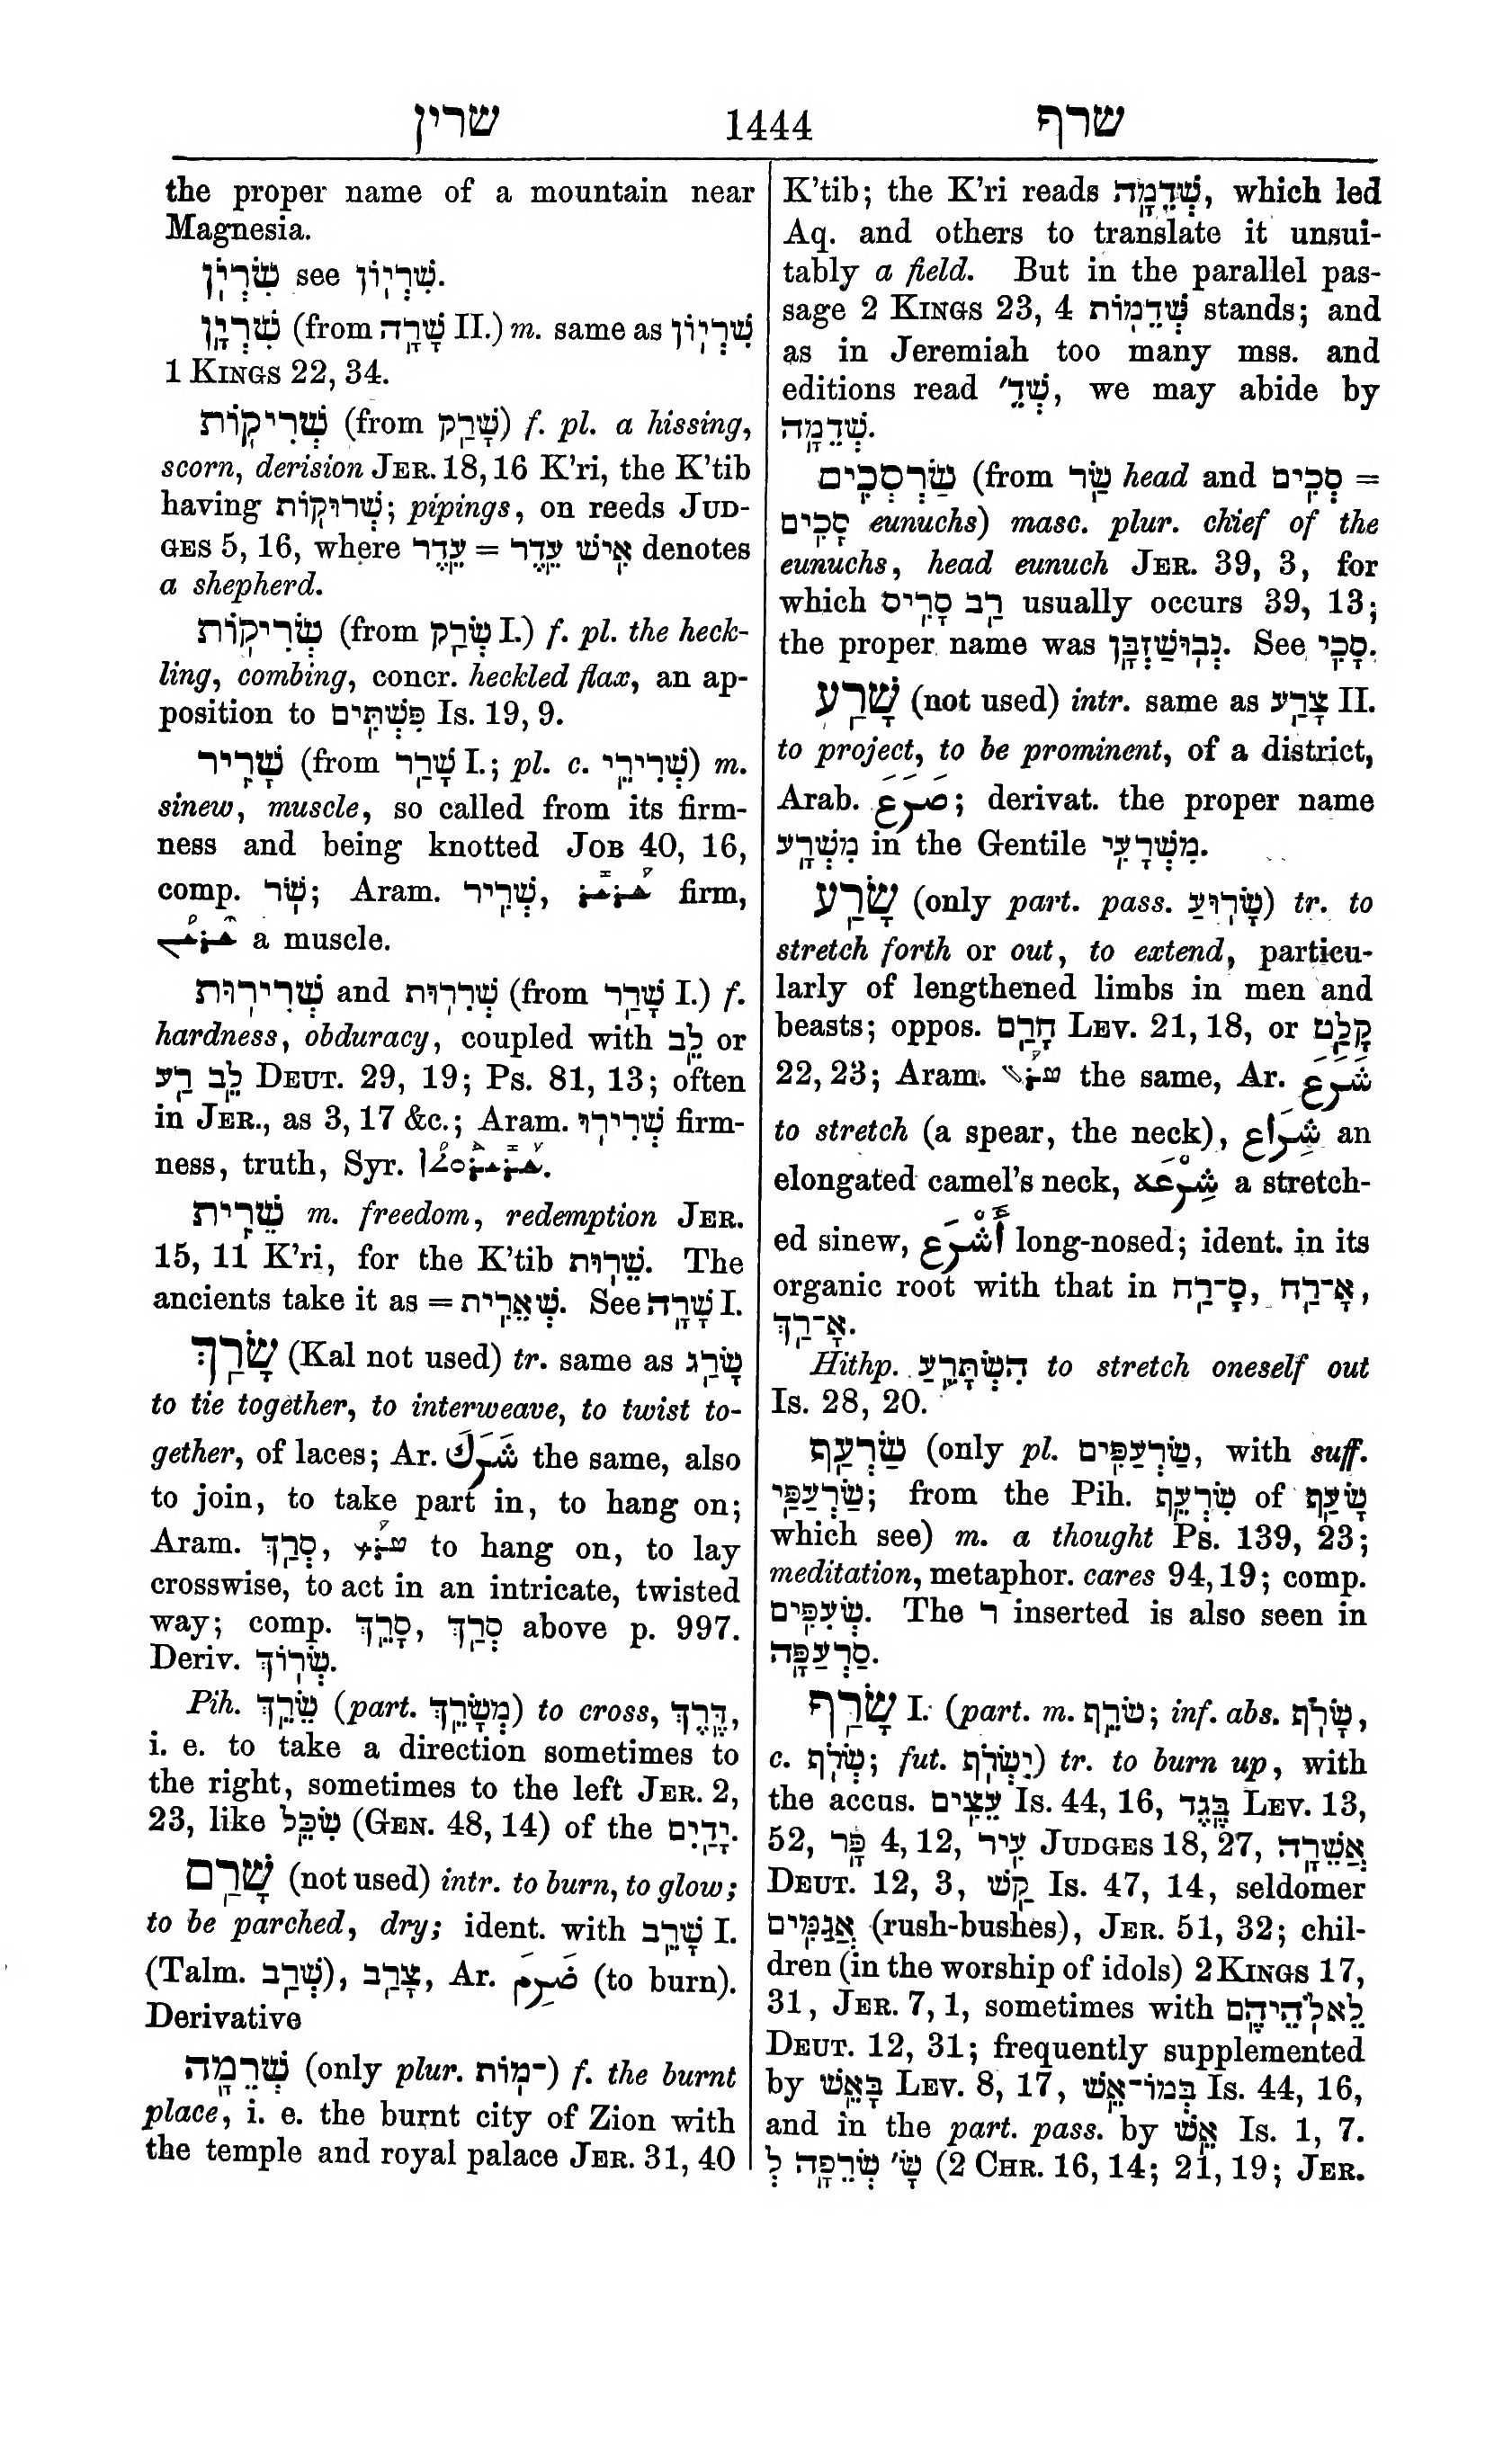 שרין 1444 שרף
the proper name of a mountain near
Magnesia.
שִׂרְיֹן see שִׁרְיוֹן.
שִׁרְיָן (from שָׁרָה II.) m. same as שִׁרְיוֹן
1 KINGS 22, 34.
שְׁרִיקוֹת (from שָׁרַק) f. pl. a hissing,
scorn, derision JER. 18, 16 K'ri, the K'tib
having שְׁרוּקוֹת; pipings, on reeds JUD-
GES 5, 16, where עֵדֶר = אִישׁ עֵדֶר denotes
a shepherd.
שְׂרִיקוֹת (from שָׂרַק I.) f. pl. the heck-
ling, combing, concr. heckled flax, an ap-
position to פִּשְׁתִּים Is. 19, 9.
שָׁרִיר (from שָׁרַר I.; pl. c. שְׁרִירֵי) m.
sinew, muscle, so called from its firm-
ness and being knotted JOB 40, 16,
comp. שֹׁר; Aram. שְׁרִיר, ܫܪܝܪ firm,
a muscle.
שְׁרִירוּת and שְׁרִרוּת (from שָׁרַר I.) f.
hardness, obduracy, coupled with לֵב or
לֵב רַע DEUT. 29, 19; Ps. 81, 13; often
in JER., as 3, 17 &c.; Aram. שְׁרִירוּ firm-
ness, truth, Syr. ܫܪܝܪܘܬܐ.
שֵׁרִית m. freedom, redemption JER.
15, 11 K'ri, for the K'tib שֵׁרוּת. The
ancients take it as = שְׁאֵרִית. See שָׁרָה I.
שָׂרַךְ (Kal not used) tr. same as שָׂרַג
to tie together, to interweave, to twist to-
gether, of laces; Ar. شَرَكَ the same, also
to join, to take part in, to hang on;
Aram. סְרַךְ, ܣܪܟ to hang on, to lay
crosswise, to act in an intricate, twisted
way; comp. סָרֵךְ, סְרַךְ above p. 997.
Deriv. שְׂרוֹךְ.
Pih. שֵׂרֵךְ (part. מְשָׂרֵךְ) to cross, דֶּרֶךְ,
i. e. to take a direction sometimes to
the right, sometimes to the left JER. 2,
23, like שִׂכֵּל (GEN. 48, 14) of the יָדַיִם.
שָׁרַם (not used) intr. to burn, to glow;
to be parched, dry; ident. with שָׁרֵב I.
(Talm. שְׁרַב), צָרַב, Ar. ضَرِمَ (to burn).
Derivative
שְׁרֵמָה (only plur. ־מוֹת) f. the burnt
place, i. e. the burnt city of Zion with
the temple and royal palace JER. 31, 40
K'tib; the K'ri reads שְׁדֵמָה, which led
Aq. and others to translate it unsui-
tably a field. But in the parallel pas-
sage 2 KINGS 23, 4 שְׁדֵמוֹת stands; and
as in Jeremiah too many mss. and
editions read שְׁדֵ', we may abide by
שְׁדֵמָה.
שַׂרְסְכִים (from שַׂר head and סְכִים =
סָכִים eunuchs) masc. plur. chief of the
eunuchs, head eunuch JER. 39, 3, for
which רַב סָרִיס usually occurs 39, 13;
the proper name was נְבוּשַׁזְבָּן. See סָכִי.
שָׁרַע (not used) intr. same as צָרַע II.
to project, to be prominent, of a district,
Arab. صَرَعَ; derivat. the proper name
מִשְׁרָע in the Gentile מִשְׁרָעִי.
שָׂרַע (only part. pass. שָׂרוּעַ) tr. to
stretch forth or out, to extend, particu-
larly of lengthened limbs in men and
beasts; oppos. חָרֻם LEV. 21, 18, or קָלֻט
22, 23; Aram. ܣܪܥ the same, Ar. شَرَعَ
to stretch (a spear, the neck), شِرَاع an
elongated camel's neck, شِرْعَة a stretch-
ed sinew, أَشْرَع long-nosed; ident. in its
organic root with that in סָ־רַח, אָ־רַח,
אָ־רַךְ.
Hithp. הִשְׂתָּרֵעַ to stretch oneself out
Is. 28, 20.
שַׂרְעַף (only pl. שַׂרְעַפִּים, with suff.
שַׂרְעַפַּי; from the Pih. שִׂרְעֵף of שָׂעַף
which see) m. a thought Ps. 139, 23;
meditation, metaphor. cares 94, 19; comp.
שְׂעִפִּים. The ר inserted is also seen in
סַרְעַפָּה.
שָׂרַף I. (part. m. שֹׂרֵף; inf. abs. שָׂרֹף,
c. שְׂרֹף; fut. יִשְׂרֹף) tr. to burn up, with
the accus. עֵצִים Is. 44, 16, בֶּגֶד LEV. 13,
52, פָּר 4, 12, עִיר JUDGES 18, 27, אֲשֵׁרָה
DEUT. 12, 3, קַשׁ Is. 47, 14, seldomer
אֲגַמִּים (rush-bushes), JER. 51, 32; chil-
dren (in the worship of idols) 2 KINGS 17,
31, JER. 7, 1, sometimes with לֵאלֹהֵיהֶם
DEUT. 12, 31; frequently supplemented
by בָּאֵשׁ LEV. 8, 17, בְּמוֹ־אֵשׁ Is. 44, 16,
and in the part. pass. by אֵשׁ Is. 1, 7.
שָׂ' שְׂרֵפָה לְ (2 CHR. 16, 14; 21, 19; JER.